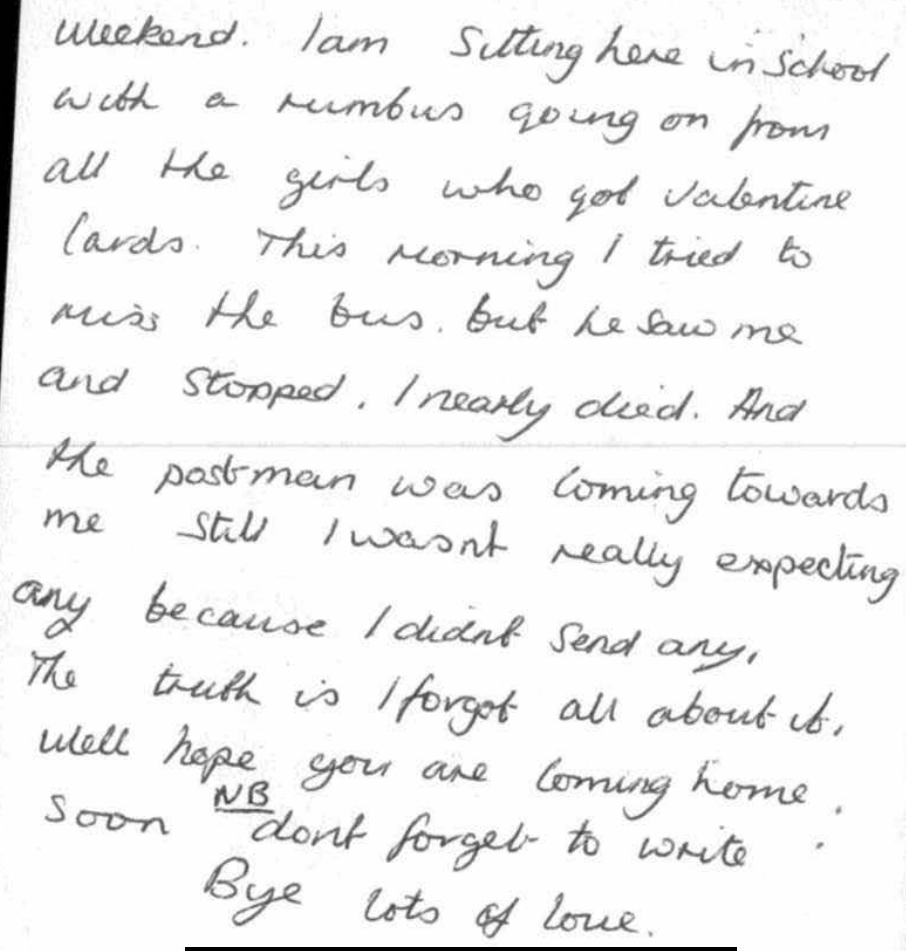 weekend. I am Sitting here in School
with a rumbus going on from
all the girls who got Valentine
Cards. This morning I tried to
miss the bus. but he saw me
and Stopped. I nearly died. And
the postman was Coming towards
me Still I wasnt really expecting
any because I didnt Send any,
The truth is I forgot all about it,
Well hope you are Coming home.
Soon NB dont forget to write.
Bye lots of love.